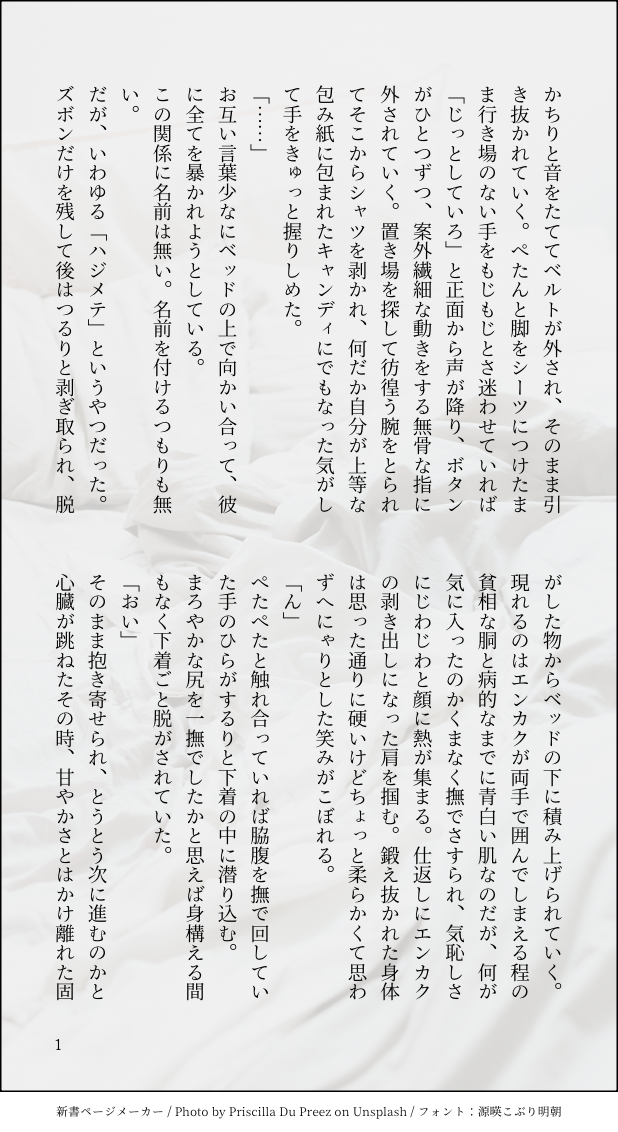 かちりと音をたててベルトが外され、そのまま引
き抜かれていく。ぺたんと脚をシーツにつけたま
ま行き場のない手をもじもじとさ迷わせていれば
「じっとしていろ」と正面から声が降り、ボタン
がひとつずつ、案外繊細な動きをする無骨な指に
外されていく。置き場を探して彷徨う腕をとられ
てそこからシャツを剥かれ、何だか自分が上等な
包み紙に包まれたキャンディにでもなった気がし
て手をきゅっと握りしめた。
「……」
お互い言葉少なにベッドの上で向かい合って、彼
に全てを暴かれようとしている。
この関係に名前は無い。名前を付けるつもりも無
い。
だが、いわゆる「ハジメテ」というやつだった。
ズボンだけを残して後はつるりと剥ぎ取られ、脱
がした物からベッドの下に積み上げられていく。
現れるのはエンカクが両手で囲んでしまえる程の
貧相な胴と病的なまでに青白い肌なのだが、何が
気に入ったのかくまなく撫でさすられ、気恥しさ
にじわじわと顔に熱が集まる。仕返しにエンカク
の剥き出しになった肩を掴む。鍛え抜かれた身体
は思った通りに硬いけどちょっと柔らかくて思わ
ずへにゃりとした笑みがこぼれる。
「ん」
ぺたぺたと触れ合っていれば脇腹を撫で回してい
た手のひらがするりと下着の中に潜り込む。
まろやかな尻を一撫でしたかと思えば身構える間
もなく下着ごと脱がされていた。
「おい」
そのまま抱き寄せられ、とうとう次に進むのかと
心臓が跳ねたその時、甘やかさとはかけ離れた固
1
新書ページメーカー / Photo by Priscilla Du Preez on Unsplash / フォント：源暎こぶり明朝